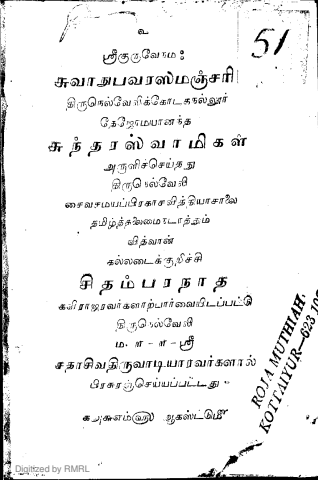 உ
51
ஸ்ரீகுருவேநம:
சுவாநுபவரஸமஞ்சரி
திருநெல்வேலிக்கோடகநல்லூர்
சுந்தரஸ்வாமிகள்
அருளிச்செய்தது
திருநெல்வேலி
சைவசமயப்பிரகாசவித்தியாசாலை
தமிழ்த்தலைமை
வித்வான்
கல்லடைக்குறிச்சி
சிதம்பரநாத
கவிராஜரவர்களாற்பார்வையிடப்பட்டு
திருநெல்வேலி
ம-ள-ள-ஸ்ரீ
சதாசிவதிருவாடியாரவர்களால்
பிரசுரஞ்செய்யப்பட்டது
ROJA MUTHIAH,
KOTTAIYUR-623 10
Digitized by RMRL